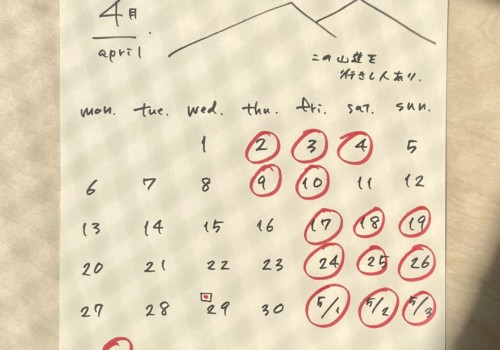 4月
april.
この山道を
行きし人あり.
mon. tue. wed. thu. fri. sat. sun.
1 2 3 4 5
6 7 8 9 10 11 12
13 14 15 16 17 18 19
20 21 22 23 24 25 26
27 28 29 30 5/1 5/2 5/3